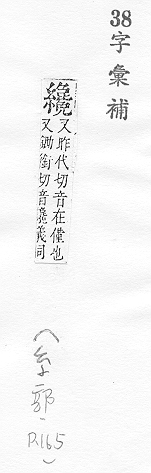 38
字彙補
纔
又昨代切音在僅也
又鋤銜切音巉義同
(糸部,
P.165
)